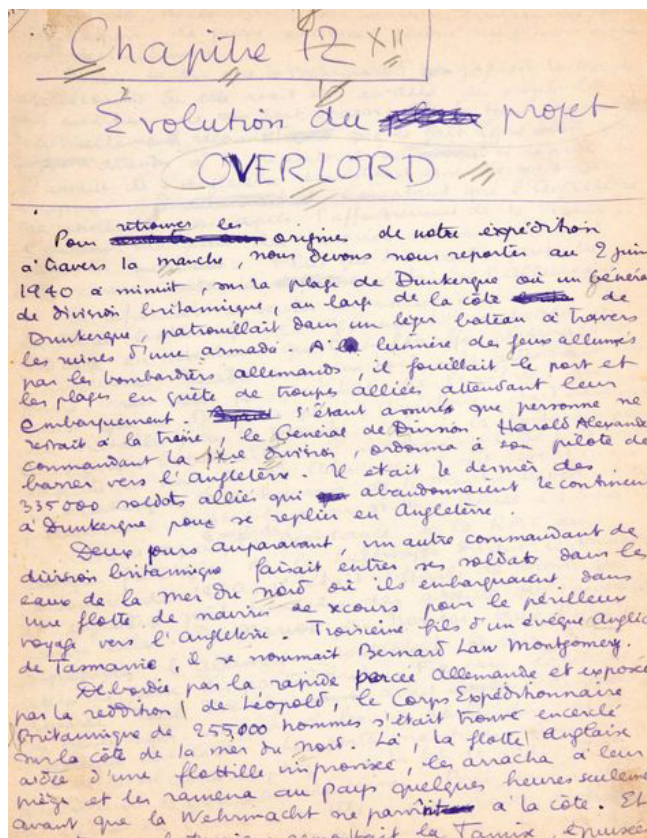 Chapitre 12 XII
Evolution du projet
OVERLORD
Pour retrouver les origines de notre expédition
à travers la manche, nous devons nous reporter au 2 juin
1940 à minuit, sur la plage de Dunkerque où un Généra
de division britannique, au large de la côte de
Dunkerque, patrouillait dans un léger bateau à travers
les ruines d'une armada. A la lumière des feux allumés
par les bombardiers allemands, il fouillait le port et
les plages en quête de troupes alliées attendant leur
embarquement. S'étant assurés que personne ne
restait à la traîne, le Général de Division Harold Alexande
commandant la 1ère division, ordonna à son pilote de
barrer vers l'Angleterre. Il était le dernier des
335000 soldats alliés qui abandonnaient le continen
à Dunkerque pour se replier en Angleterre.
Deux jours auparavant, un autre commandant de
division britannique faisait entrer ses soldats dans les
eaux de la mer du nord où ils embarquaient dans
une flotte de navires de secours pour le périlleux
voyage vers l'Angleterre. Troisième fils d'un évêque Anglic
de Tasmanie, il se nommait Bernard Law Montgomery.
Débordée par la rapide percée allemande et exposé
par la reddition de Léopold, le Corps Expéditionnaire
Britannique de 255,000 hommes s'était trouvé encerclé
sur la côte de la mer du nord. Là, la flotte Anglaise
aidée d'une flottille improvisée, les arracha à leur
piège et les ramena au pays quelques heures seuleme
avant que la Wehrmacht ne parvint à la côte. Et
la Tamise, épuisée